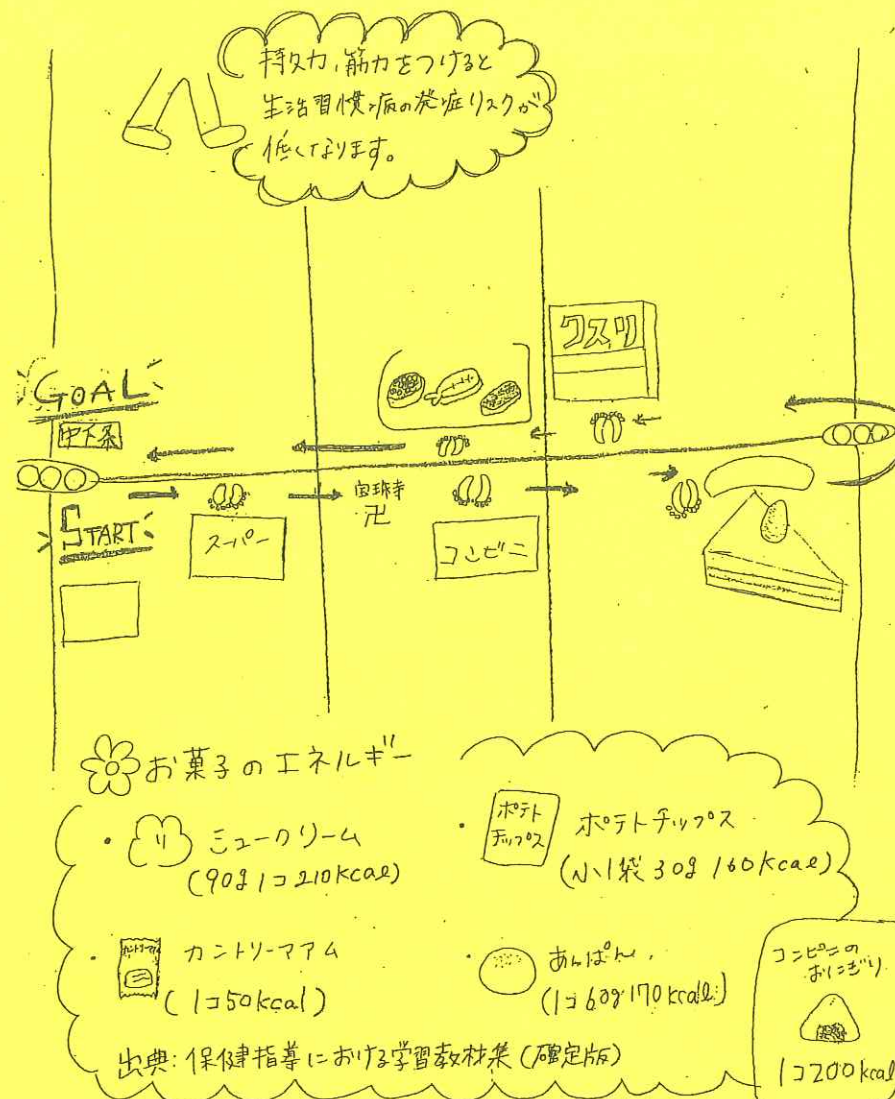 持久力、筋力をつけると
生活習慣病の発症リスクが
低くなります。
クスリ
GOAL
中下条
START
スーパー
宝珠寺
卍
コンビニ
お菓子のエネルギー
・シュークリーム
(90g 1コ 210kcal)
・ポテト
チップス
ポテトチップス
(小1袋 30g 160kcal)
・カントリーマアム
カントリーマアム
(1コ50kcal)
・あんぱん
(1コ60g 170kcal)
コンビニの
おにぎり
1コ200kcal
出典:保健指導における学習教材集(確定版)